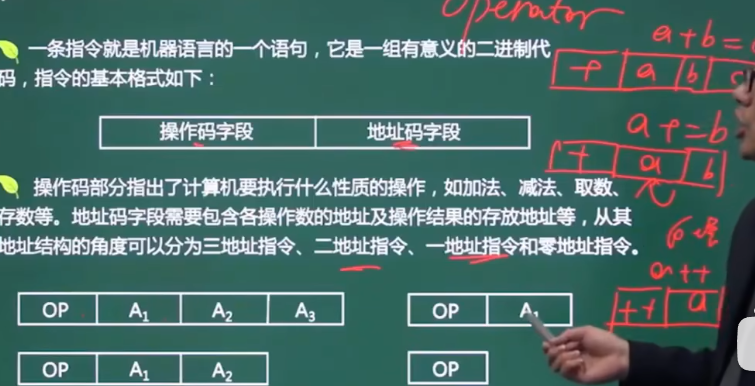 operator
一条指令就是机器语言的一个语句，它是一组有意义的二进制代
码，指令的基本格式如下：
a+b=
+ a b
操作码字段 地址码字段
a+=b
+ a b
操作码部分指出了计算机要执行什么性质的操作，如加法、减法、取数、
存数等。地址码字段需要包含各操作数的地址及操作结果的存放地址等，从其
地址结构的角度可以分为三地址指令、二地址指令、一地址指令和零地址指令。
a++
++ a
OP A₁ A₂ A₃
OP A₁
OP A₁ A₂
OP